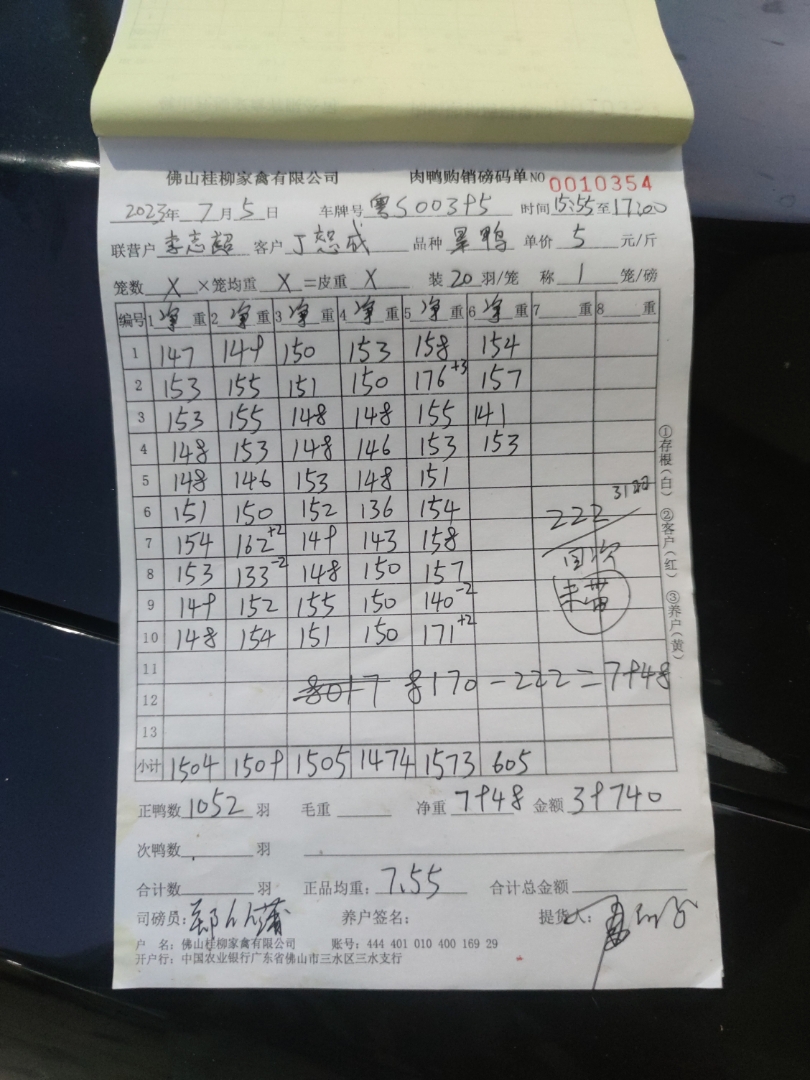 佛山桂柳家禽有限公司 肉鸭购销磅码单NO 0010354
2023年 7月5日 车牌号 粤S003P5 时间15:55至17:00
联营户 李志超 客户 丁恕成 品种 单价 5 元/斤
笼数 X ×笼均重 X =皮重 X 装20羽/笼 称 1 笼/磅
编号 1净重 2净重 3净重 4净重 5净重 6净重 7重 8重
1 147 149 150 153 158 154
2 153 155 151 150 176+3 157
3 153 155 148 148 155 141
4 148 153 148 146 153 153
5 148 146 153 148 151
6 151 150 152 136 154
7 154 162+2 149 143 158
8 153 133-2 148 150 157
9 149 152 155 150 140-2
10 148 154 151 150 171+2
11
12
13
31羽
222
回次
未带
8017 8170-222=7948
小计 1504 1509 1505 1474 1573 605
正鸭数1052羽 毛重 净重 7948 金额 39740
次鸭数 羽
合计数 羽 正品均重: 7.55 合计总金额
司磅员: 养户签名; 提货人:
户 名: 佛山桂柳家禽有限公司 账号: 444 401 010 400 169 29
开户行: 中国农业银行广东省佛山市三水区三水支行
①存根(白) ②客户(红) ③养户(黄)